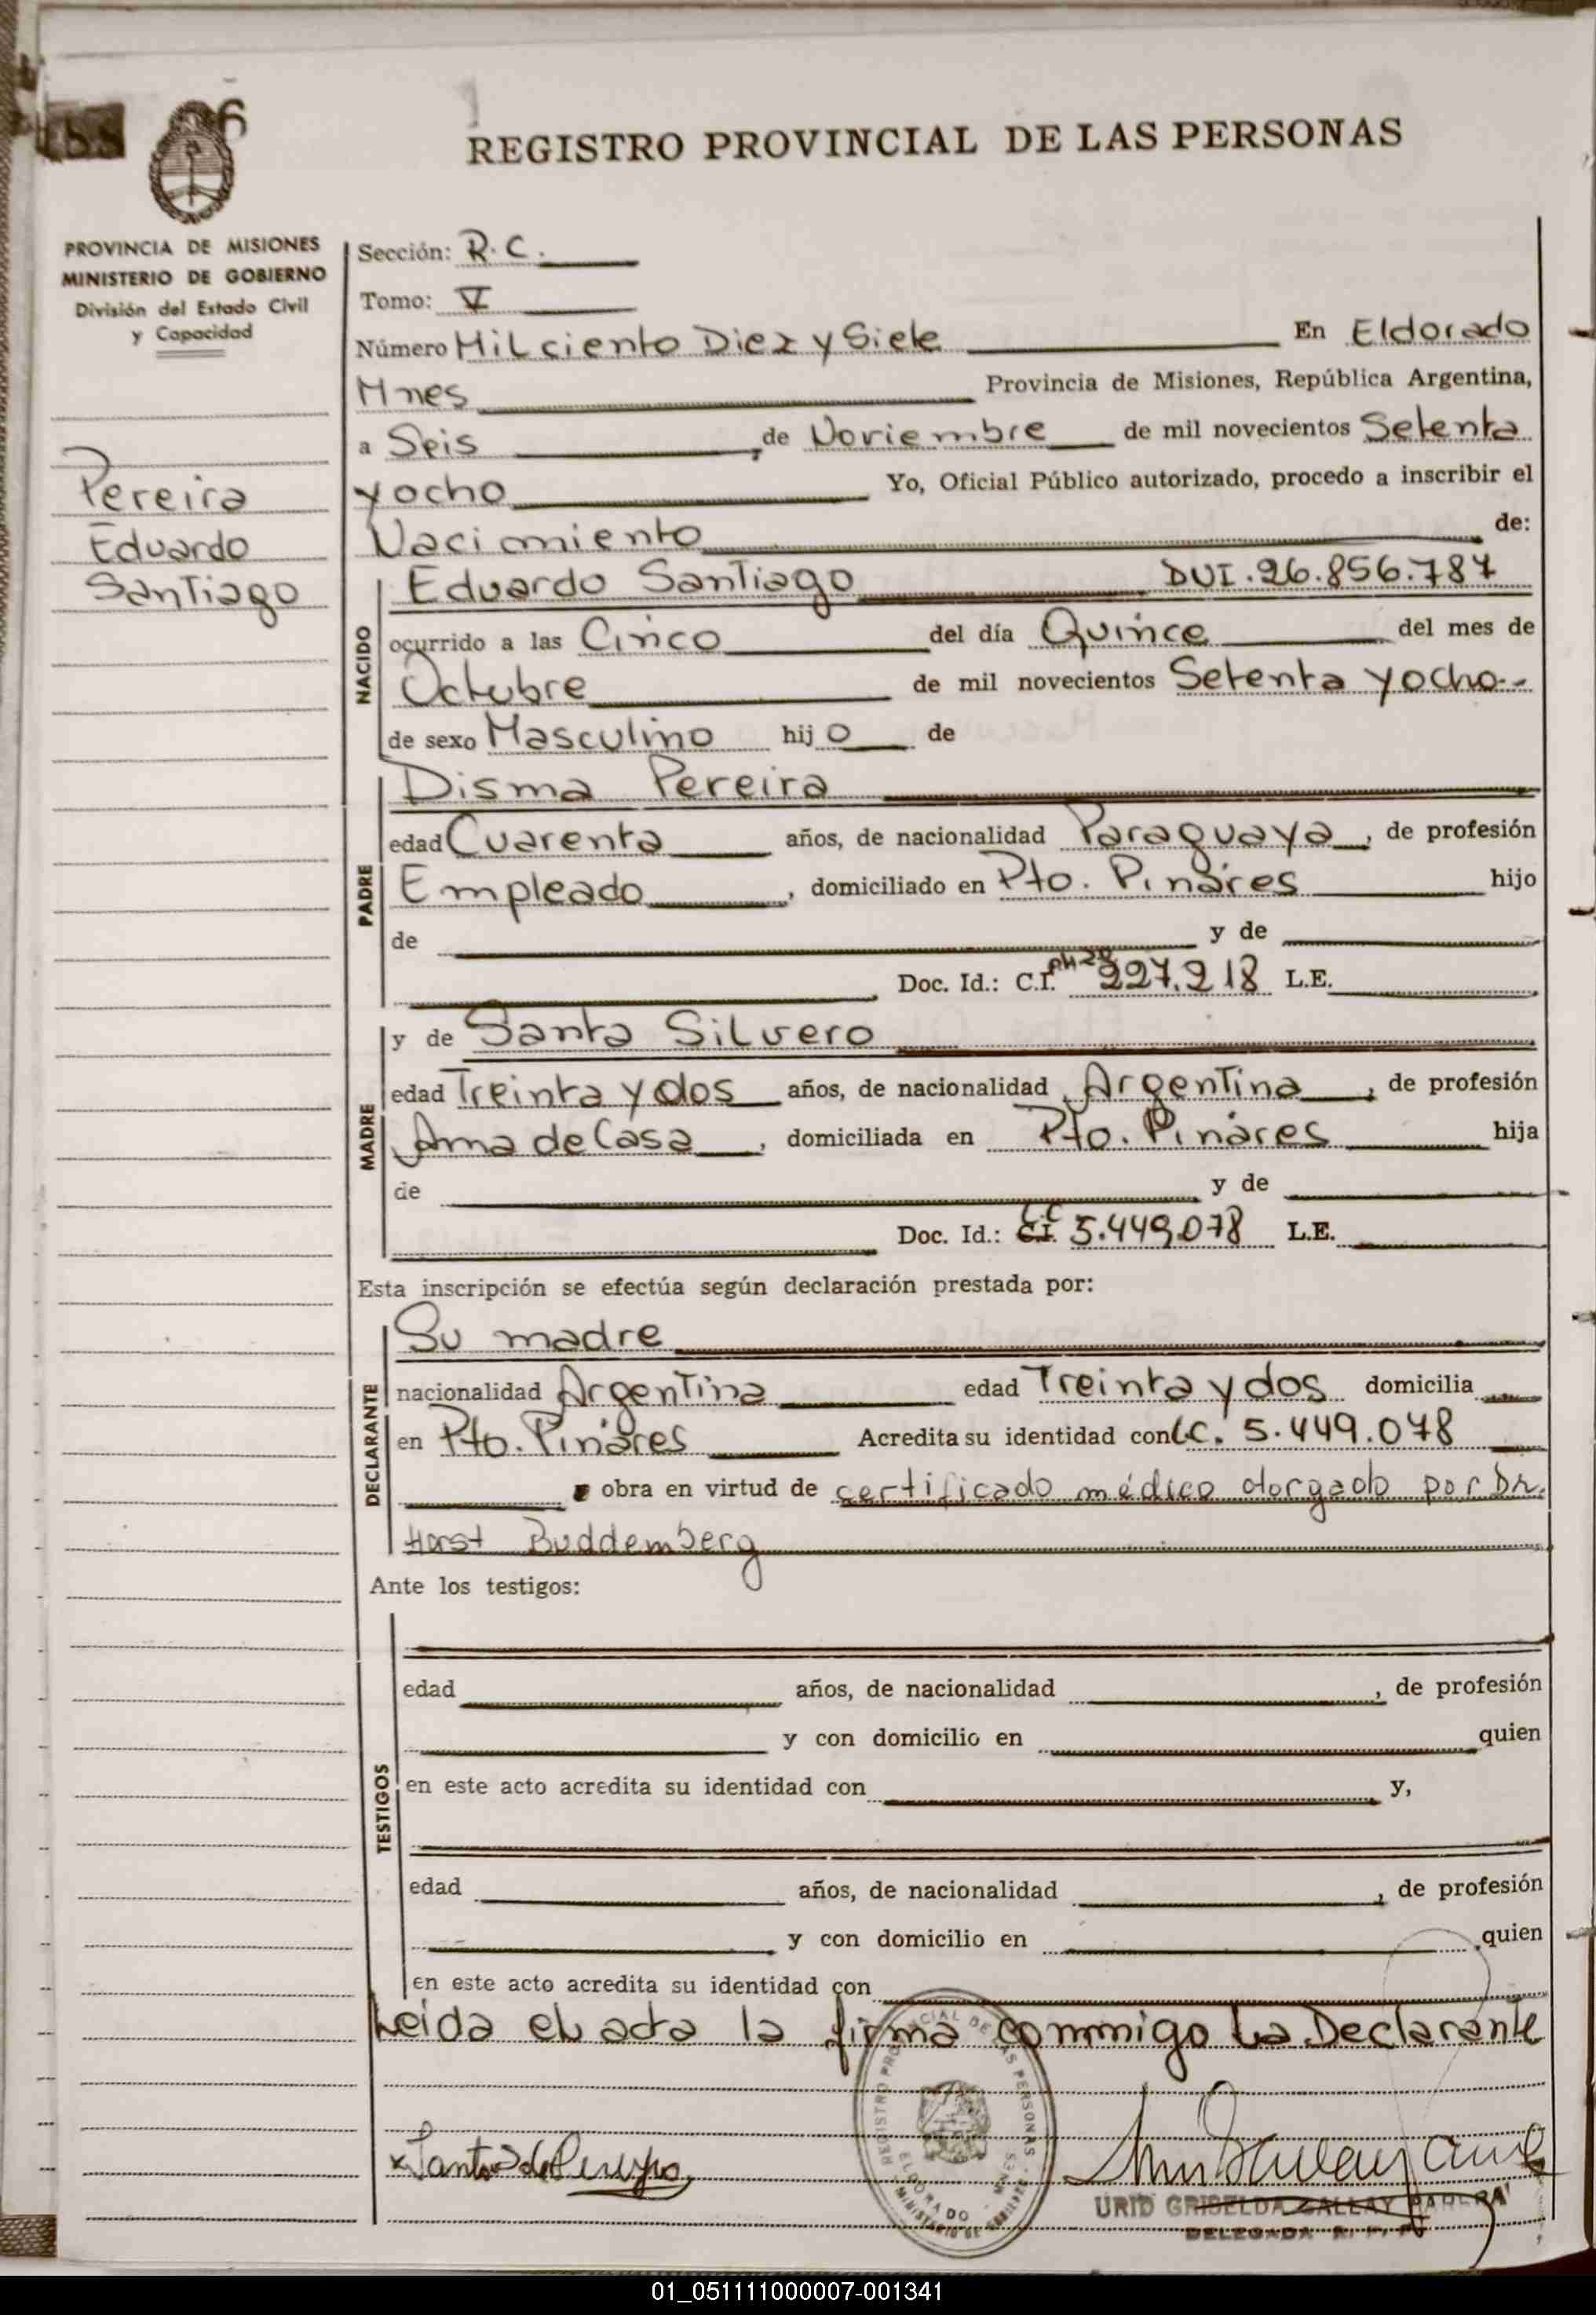 6
REGISTRO PROVINCIAL DE LAS PERSONAS
PROVINCIA DE MISIONES
MINISTERIO DE GOBIERNO
División del Estado Civil
y Capacidad
Pereira
Eduardo
Santiago
Sección: R.C.
Tomo: V
Número Mil ciento Diez y Siete En Eldorado
Mnes Provincia de Misiones, República Argentina,
a Seis de Noviembre de mil novecientos Setenta
y ocho Yo, Oficial Público autorizado, procedo a inscribir el
Nacimiento de:
NACIDO
Eduardo Santiago DUI.26.856.787
ocurrido a las Cinco del día Quince del mes de
Octubre de mil novecientos Setenta y ocho--
de sexo Masculino hijo de
PADRE
Disma Pereira
edad Cuarenta años, de nacionalidad Paraguaya, de profesión
Empleado, domiciliado en Pto. Pinares hijo
de y de
Doc. Id.: C.I. 227.218 L.E.
MADRE
y de Santa Silvero
edad Treinta y dos años, de nacionalidad Argentina, de profesión
Ama de Casa, domiciliada en Pto. Pinares hija
de y de
Doc. Id.: C.I. LC 5.449.078 L.E.
Esta inscripción se efectúa según declaración prestada por:
DECLARANTE
Su madre
nacionalidad Argentina edad Treinta y dos domicilia
en Pto. Pinares Acredita su identidad con LC. 5.449.078
obra en virtud de certificado médico otorgado por Dr.
Horst Buddemberg
Ante los testigos:
TESTIGOS
edad años, de nacionalidad , de profesión
y con domicilio en quien
en este acto acredita su identidad con y,
edad años, de nacionalidad , de profesión
y con domicilio en quien
en este acto acredita su identidad con
Leida el acta la firma conmigo La Declarante
REGISTRO PROVINCIAL DE LAS PERSONAS
ELDORADO - MNES
MINISTERIO DE GOBIERNO
URID GRISELDA GALLAY PARERA
DELEGADA R. P. P.
01_051111000007-001341